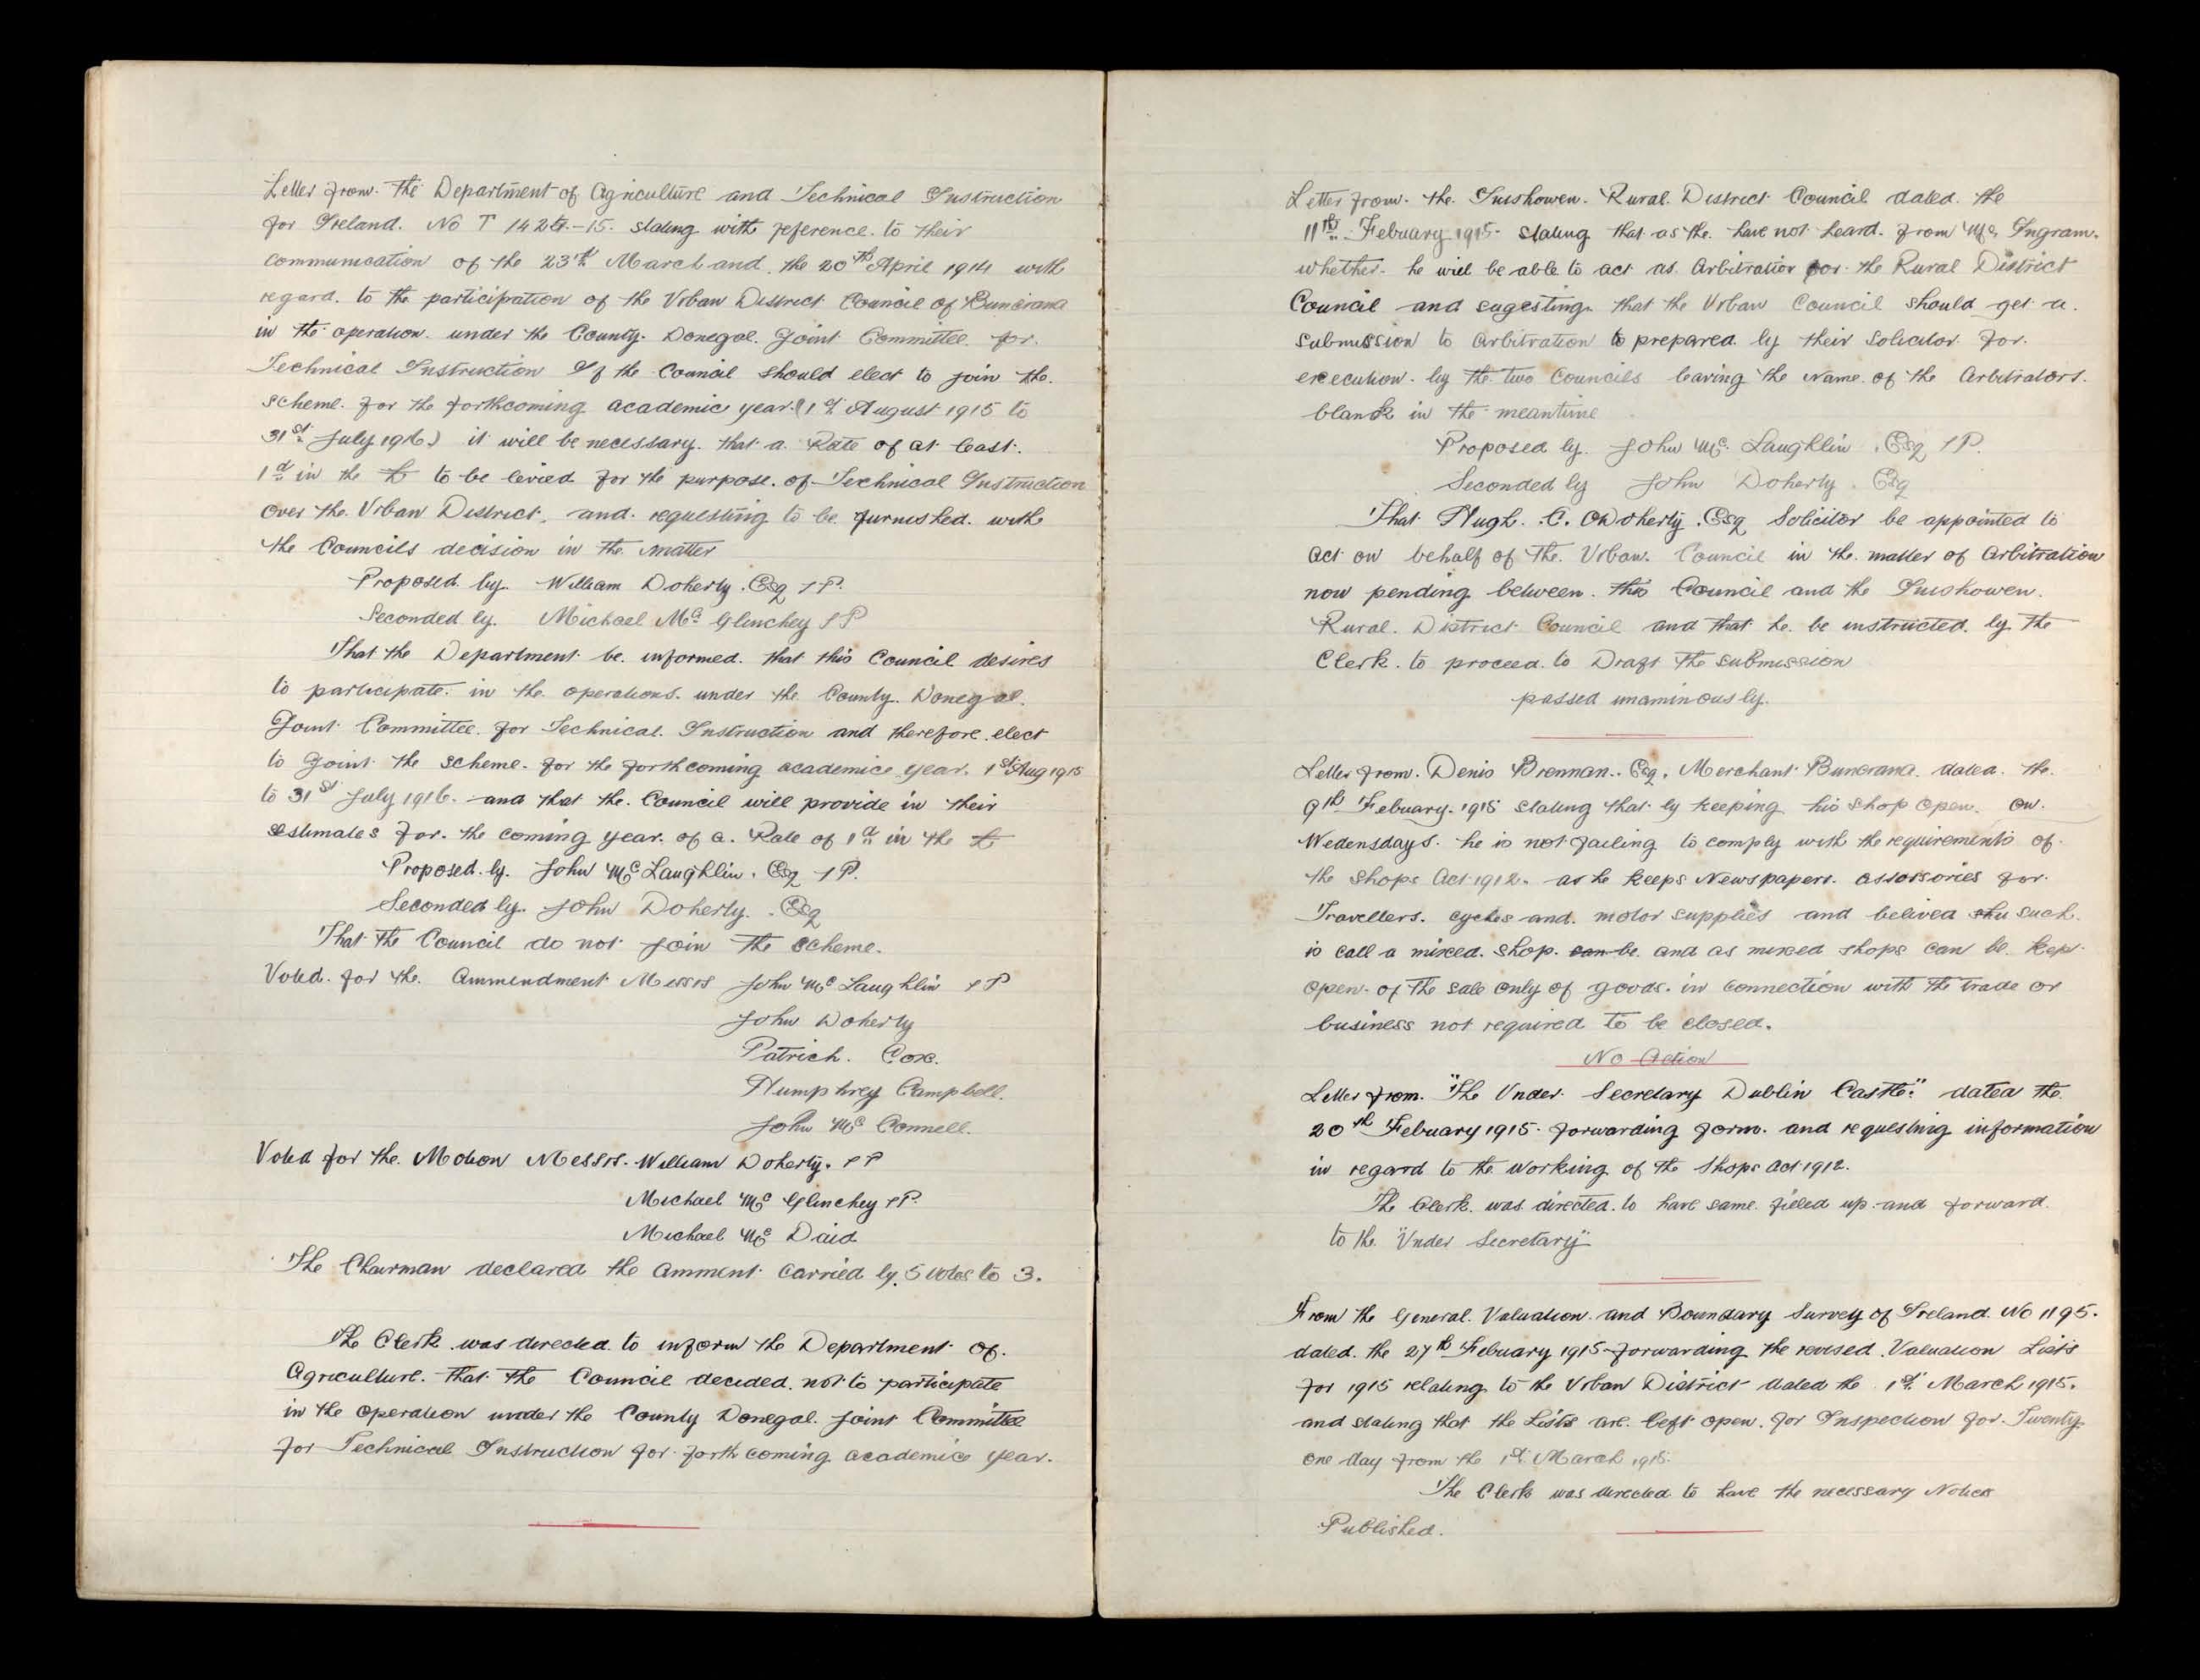 Letter from the Department of Agriculture and Technical Instruction
for Ireland. No T 1424-15. stating with reference to their
communication of the 23rd March and the 20th April 1914 with
regard to the participation of the Urban District Council of Buncrana
in the operation under the County Donegal Joint Committee for
Technical Instruction If the Council should elect to join the
scheme for the forthcoming academic year (1st August 1915 to
31st July 1916) it will be necessary that a Rate of at least
1d in the £ to be levied for the purpose of Technical Instruction
over the Urban District, and requesting to be furnished with
the Councils decision in the matter
Proposed by William Doherty Esq JP.
Seconded by Michael Mc Glinchey JP
That the Department be informed that this Council desires
to participate in the operations under the County Donegal
Joint Committee for Technical Instruction and therefore elect
to joint the scheme for the forthcoming academic year 1st Aug 1915
to 31st July 1916. and that the Council will provide in their
estimates for the coming year of a Rate of 1d in the £
Proposed by John Mc Laughlin. Esq JP.
Seconded by John Doherty. Esq
That the Council do not join the scheme.
Voted for the Ammendment Messrs John Mc Laughlin JP
John Doherty
Patrich Cox.
Humphrey Campbell.
John Mc Connell.
Voted for the Motion Messrs. William Doherty. JP
Michael Mc Glinchey JP.
Michael Mc Daid
The Chairman declared the amment carried by 5 votes to 3.
The Clerk was directed to inform the Department of
Agriculture that the Council decided not to participate
in the operation under the County Donegal Joint Committee
for Technical Instruction for forth coming academic year.
Letter from the Inishowen Rural District Council dated the
11th Febuary 1915 stating that as the have not heard from Mr Ingram
whether he will be able to act as Arbitratior for the Rural District
Council and sugesting that the Urban Council should get a
submission to arbitration to prepared by their Solicitor for
execution by the two Councils leaving the name of the Arbitrators
blank in the meantime
Proposed by John Mc Laughlin Esq JP.
Seconded by John Doherty Esq
That Hugh C. ODoherty Esq Solicitor be appointed to
act on behalf of the Urban Council in the matter of Arbitration
now pending between this Council and the Inishowen
Rural District Council and that he be instructed by the
Clerk to proceed to Draft the submission
passed unaminously.
Letter from Denis Brennan. Esq. Merchant Buncrana dated the
9th Febuary 1915 stating that by keeping his shop open on
Wedensdays he is not failing to comply with the requirements of
the Shops Act 1912. as he keeps Newspapers. assossories for
Travellers. cycles and motor supplies and belived such
is call a mixed shop. can be and as mixed shops can be kep
open of the sale only of goods in connection with the trade or
business not required to be closed.
No Action
Letter from "The Under Secretary Dublin Castle" dated the
20th Febuary 1915 forwarding form and requesting information
in regard to the working of the Shops Act 1912.
The Clerk was directed to have same filled up and forward
to the "Under Secretary"
From the General Valuation and Boundary Survey of Ireland No 1195.
dated the 27th Febuary 1915 forwarding the revised Valuation Lists
for 1915 relating to the Urban District dated the 1st March 1915.
and stating that the Lists are left open for Inspection for Twenty
one day from the 1st March 1915.
The Clerk was directed to have the necessary Notices
Published.